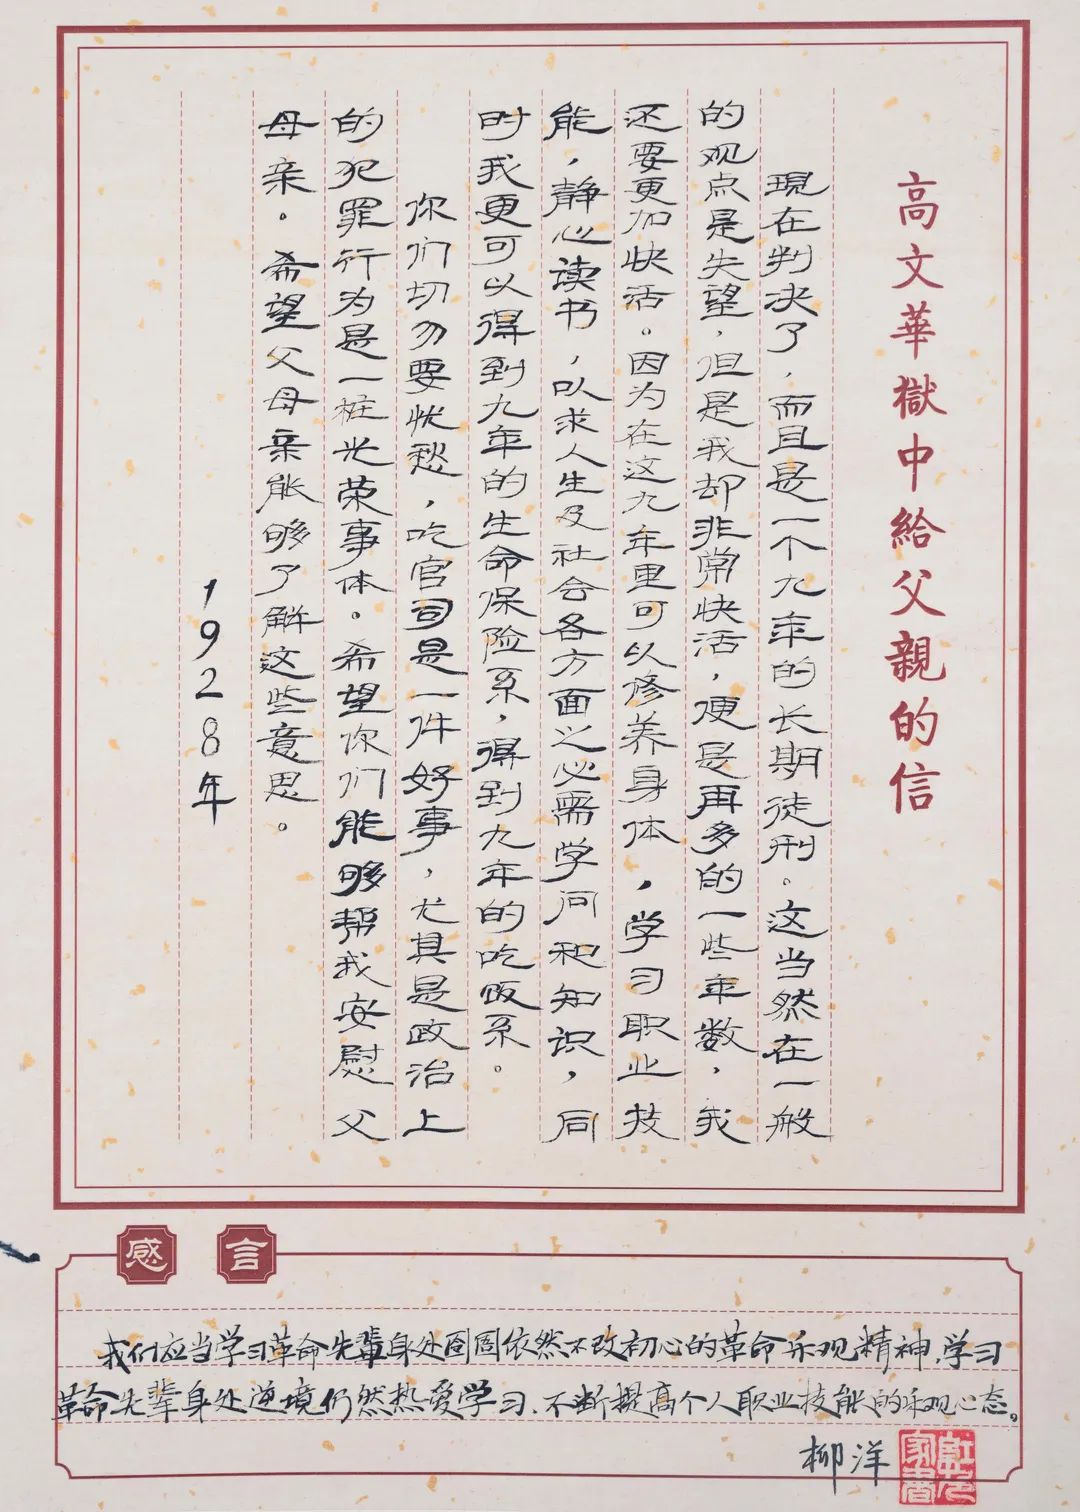 高文華獄中給父親的信
現在判决了，而且是一个九年的长期徒刑。这当然在一般
的观点是失望，但是我却非常快活，便是再多的一些年数，我
还要更加快活。因为在这九年里可以修养身体，学习职业技
能，静心读书，以求人生及社会各方面之必需学问和知识，同
时我更可以得到九年的生命保险系，得到九年的吃饭系。
你们切勿要忧愁，吃官司是一件好事，尤其是政治上
的犯罪行为是一桩光荣事体。希望你们能够帮我安慰父
母亲。希望父母亲能够了解这些意思。
1928年
感言
我们应当学习革命先輩身处囹圄依然不改初心的革命乐观精神，学习
革命先輩身处逆境仍然热爱学习、不断提高个人职业技能的乐观心态。
柳洋
紅色家書